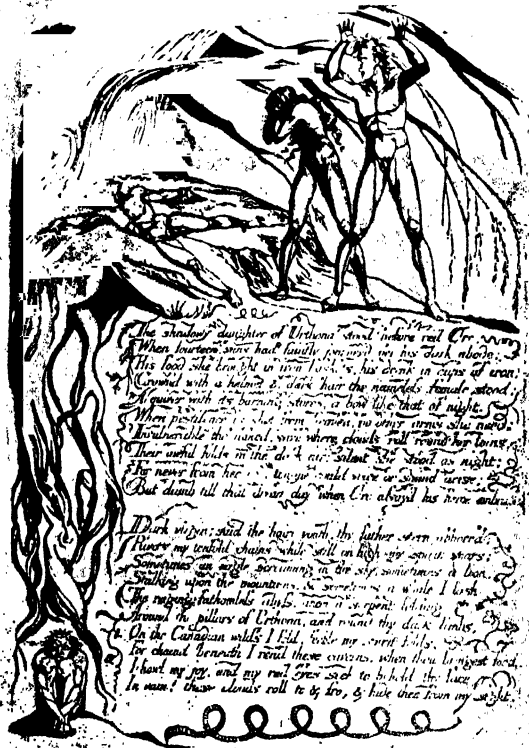 The shadowy daughter of Urthona stood before red Orc.
When fourteen suns had faintly journey'd on his dark abode;
His food she brought in iron baskets, his drink in cups of iron;
Crown'd with a helmet & dark hair the nameless female stood;
A quiver with its burning stores, a bow like that of night,
When pestilence is shot from heaven; no other arms she need:
Invulnerable tho' naked, save where clouds roll round her loins,
Their awful folds in the dark air; silent she stood as night;
For never from her iron tongue could voice or sound arise;
But dumb till that dread day when Orc assay'd his fierce embrace.
Dark virgin; said the hairy youth, thy father stern abhorr'd;
Rivets my tenfold chains while still on high my spirit soars;
Sometimes an eagle screaming in the sky, sometimes a lion,
Stalking upon the mountains, & sometimes a whale I lash
The raging fathomless abyss, anon a serpent folding
Around the pillars of Urthona, and round thy dark limbs,
On the Canadian wilds I fold, feeble my spirit folds.
For chaind beneath I rend these caverns; when thou bringest food
I howl my joy, and my red eyes seek to behold thy face
In vain! these clouds roll to & fro, & hide thee from my sight.